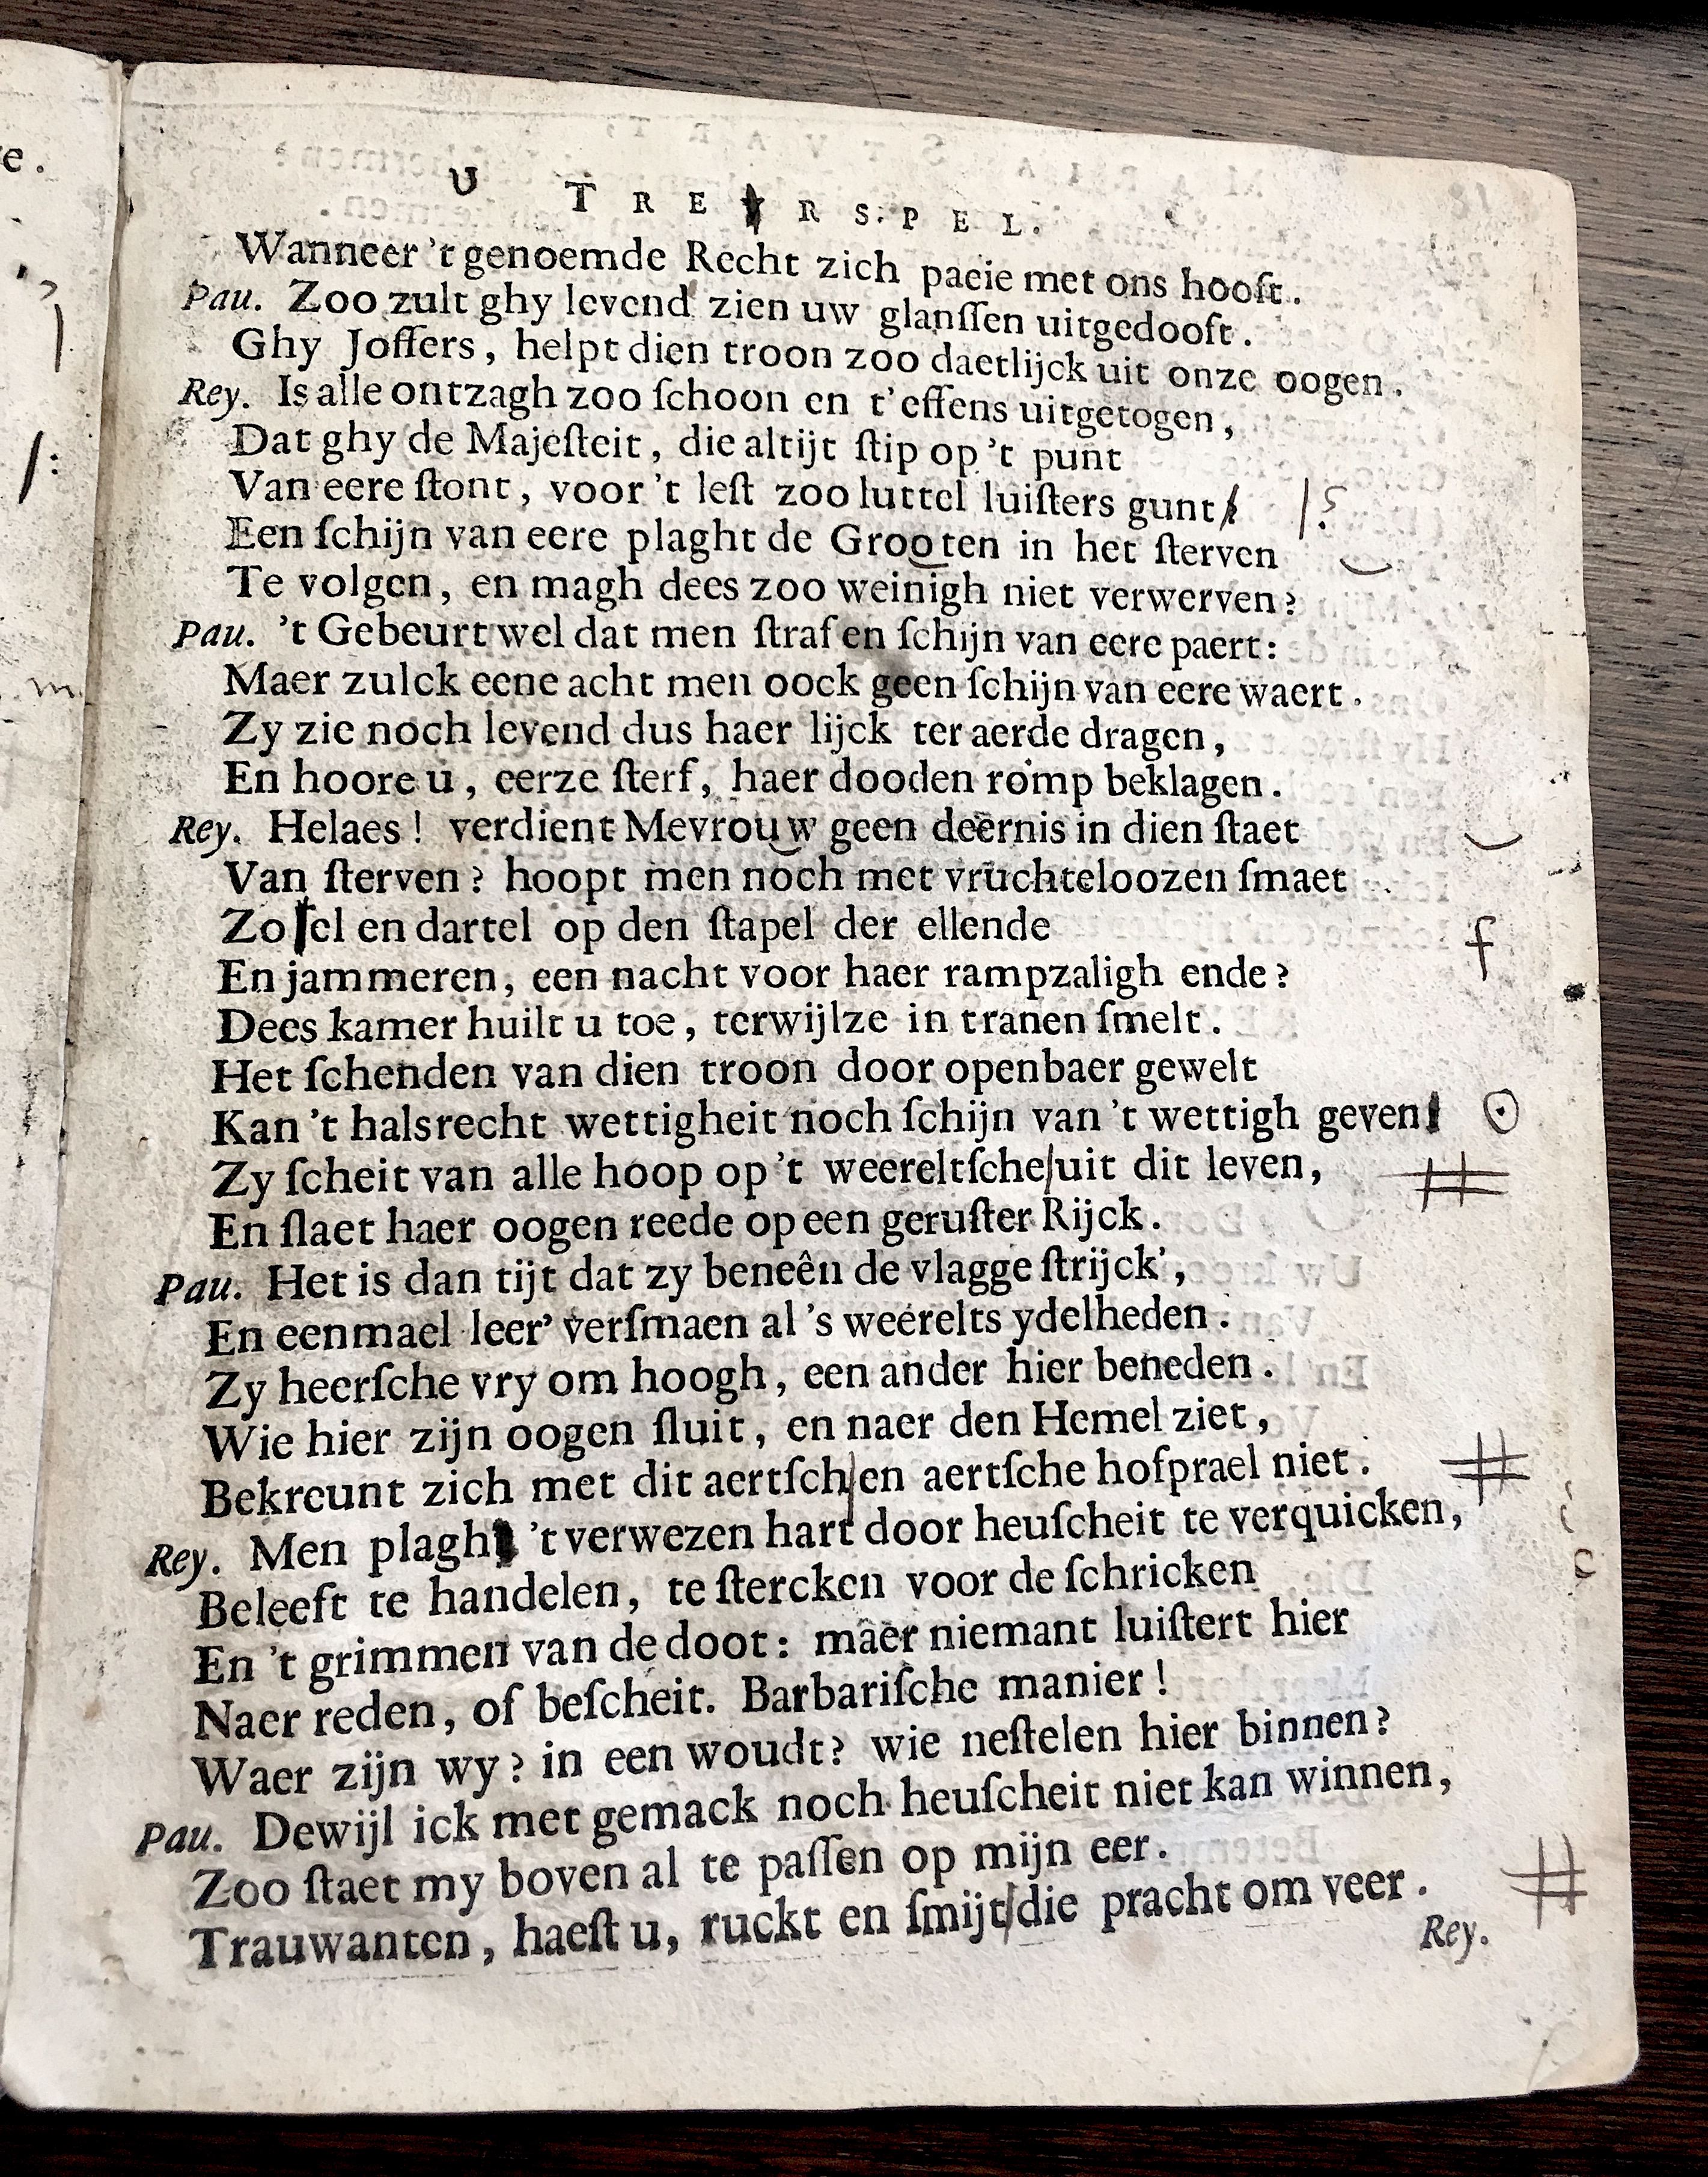 U TRE RSPEL.
Wanneer 't genoemde Recht zich paeie met ons hooft.
Pau. Zoo zult ghy levend zien uw glanſſen uitgedooft.
Ghy Joffers, helpt dien troon zoo daetlijck uit onze oogen.
Rey. Is alle ontzagh zoo ſchoon en t'effens uitgetogen,
Dat ghy de Majeſteit, die altijt ſtip op 't punt
Van eere ſtont, voor 't leſt zoo luttel luiſters gunt |?
Een ſchijn van eere plaght de Grooten in het ſterven
Te volgen, en magh dees zoo weinigh niet verwerven?
Pau. 't Gebeurt wel dat men ſtraf en ſchijn van eere paert:
Maer zulck eene acht men oock geen ſchijn van eere waert.
Zy zie noch levend dus haer lijck ter aerde dragen,
En hoore u, eerze ſterf, haer dooden romp beklagen.
Rey. Helaes! verdient Mevrouw geen deernis in dien ſtaet
Van ſterven? hoopt men noch met vruchteloozen ſmaet
Zo el en dartel op den ſtapel der ellende f
En jammeren, een nacht voor haer rampzaligh ende?
Dees kamer huilt u toe, terwijlze in tranen ſmelt.
Het ſchenden van dien troon door openbaer gewelt
Kan 't halsrecht wettigheit noch ſchijn van 't wettigh geven ⊙
Zy ſcheit van alle hoop op 't weereltſche|uit dit leven, #
En ſlaet haer oogen reede op een geruſter Rijck.
Pau. Het is dan tijt dat zy beneên de vlagge ſtrijck',
En eenmael leer' verſmaen al 's weerelts ydelheden.
Zy heerſche vry om hoogh, een ander hier beneden.
Wie hier zijn oogen ſluit, en naer den Hemel ziet,
Bekreunt zich met dit aertſch|en aertſche hofprael niet. #
Rey. Men plagh 't verwezen hart door heuſcheit te verquicken,
Beleeft te handelen, te ſtercken voor de ſchricken
En 't grimmen van de doot: maer niemant luiſtert hier
Naer reden, of beſcheit. Barbariſche manier!
Waer zijn wy? in een woudt? wie neſtelen hier binnen?
Pau. Dewijl ick met gemack noch heuſcheit niet kan winnen,
Zoo ſtaet my boven al te paſſen op mijn eer.
Trauwanten, haeſt u, ruckt en ſmijt|die pracht om veer. #
Rey.